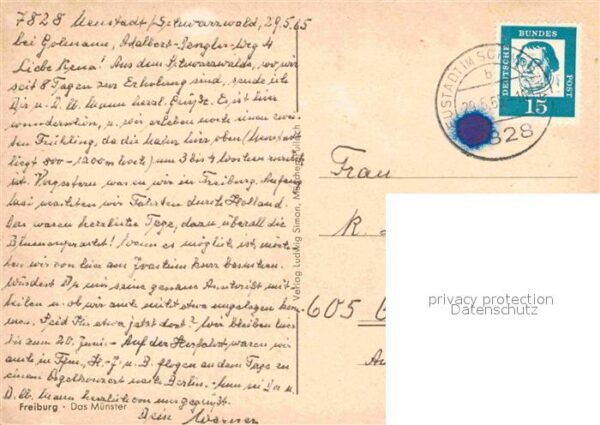 7828 Neustadt/Schwarzwald, 29.5.65
bei Golmann, Adalbert- -Weg 4
Liebe Rena! Aus dem Schwarzwald, wo wir
seit 8 Tagen zur Erholung sind, sende ich
Dir u. D. lb. Mann herzl. Grüße. Es ist hier
wundervoll, u. wir erleben noch einen zwei-
ten Frühling, da die Natur hier oben (Neustadt
liegt 800-1200 m hoch) um 3 bis 4 Wochen zurück
ist. Vorgestern waren wir in Freiburg. Anfang
Mai machten wir Fahrten durch Holland.
Das waren herrliche Tage, dazu überall die
Blumenpracht! Wenn es möglich ist, möch-
ten wir von hier am kurz besuchen.
Würdest Du mir seine genaue Anschrift mit-
teilen u. ob wir auch nicht etwa ungelegen kom-
men. Seid Ihr etwa jetzt dort? Wir bleiben hier
bis zum 20. Juni. - Auf der Herfahrt waren wir
auch in Ffm, H.-J. u. B. flogen an dem Tage zu
einem Orgelkonzert nach Berlin. - Nun sei Du u.
D. lb. Mann herzlich von uns gegrüßt.
Dein Werner
Freiburg · Das Münster
Verlag Ludwig Simon, München-Pullach
NEUSTADT IM SCH
b
29.5.65
7828
DEUTSCHE BUNDESPOST
15
Frau
K.
605
privacy protection
Datenschutz